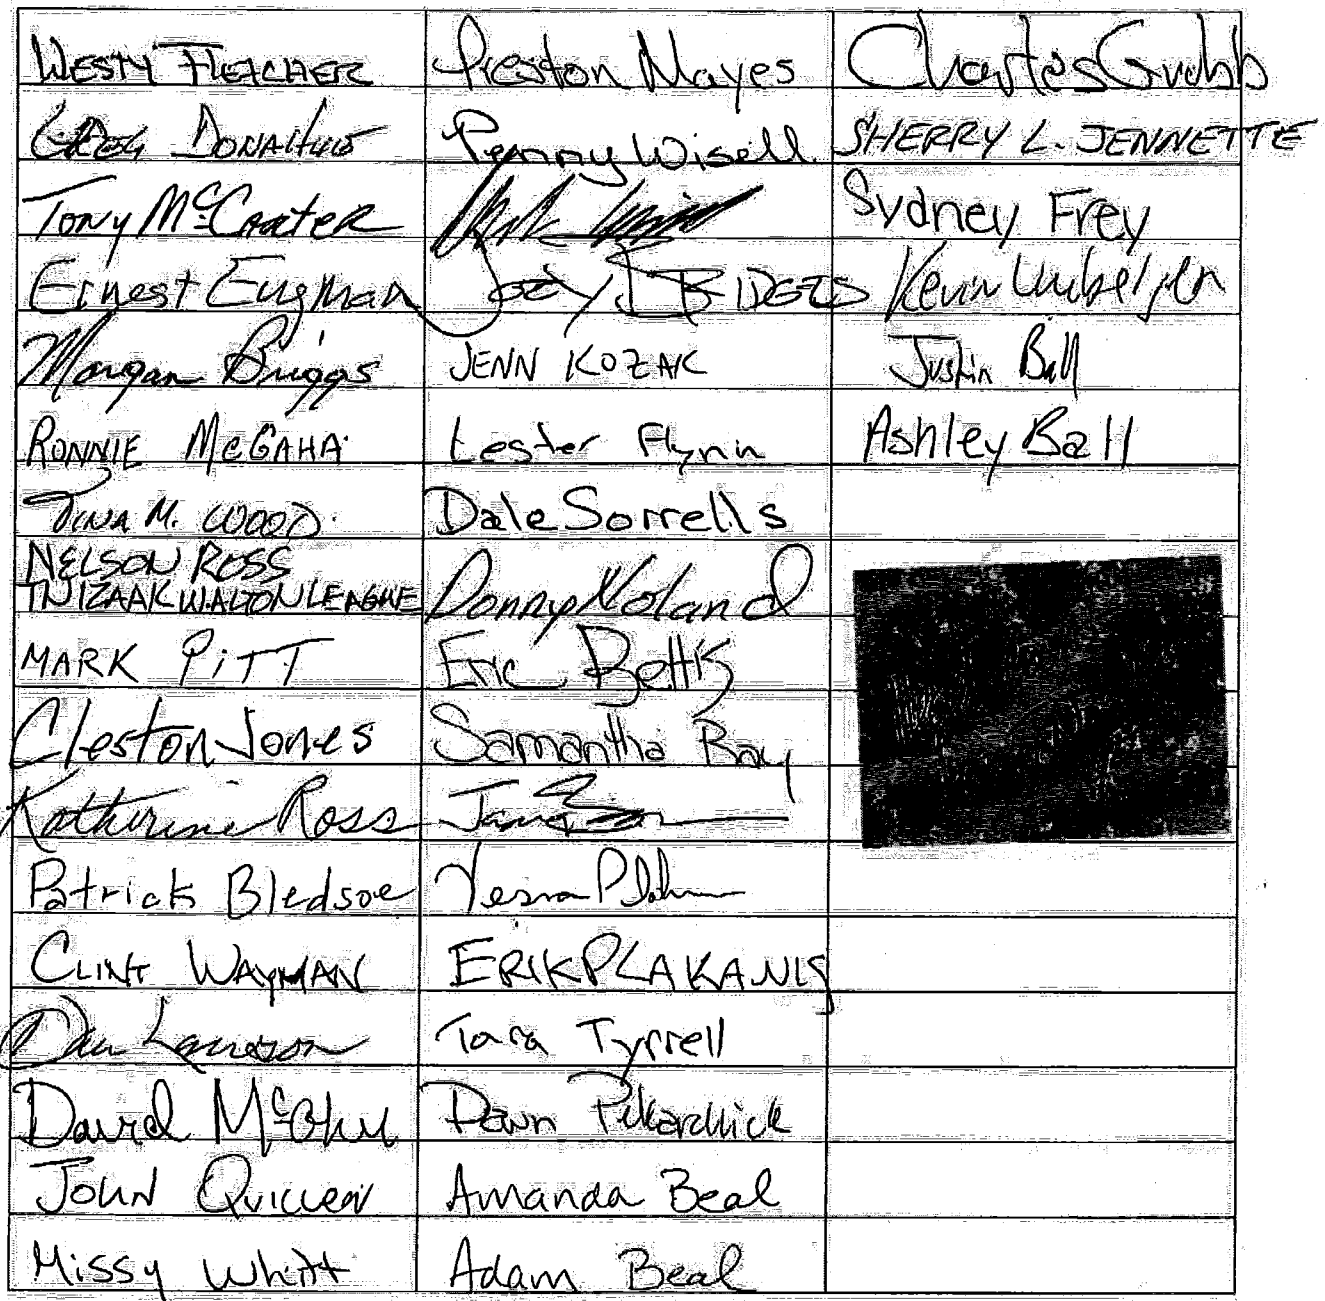 WESTY FLETCHER
GREG DONAHUE
TONY McCARTER
Ernest Engman
Morgan Briggs
RONNIE McGAHA
TINA M. WOOD
NELSON ROSS
TN IZAAK WALTON LEAGUE
MARK PITT
Cleston Jones
Katherine Ross
Patrick Bledsoe
CLINT WAYMAN
Dan Lawson
David
JOHN QUILLEN
Missy Whitt
Preston Mayes
Penny Wisell
JODY BRIDGES
JENN KOZAK
Lester Flynn
Dale Sorrells
Donny Noland
Eric Bettis
Samantha Ray
ERIK PLAKANIS
Tara Tyrrell
Dawn
Amanda Beal
Adam Beal
Charles Grubb
SHERRY L. JENNETTE
Sydney Frey
Kevin
Justin Ball
Ashley Ball